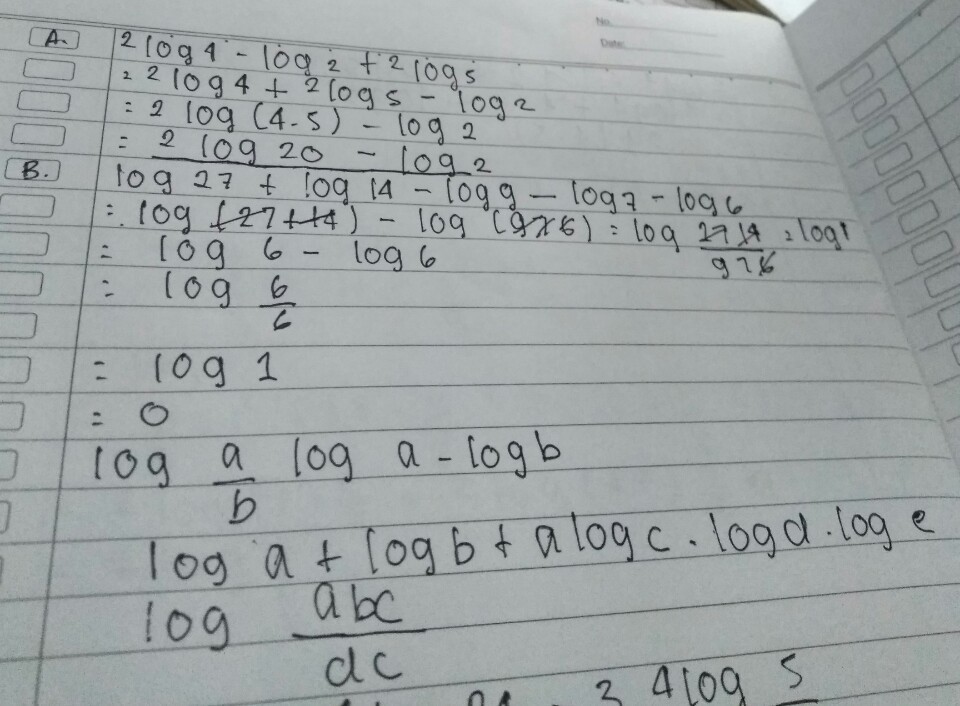 No.
Date:
A. ²log 4 - log 2 + ²log 5
= ²log 4 + ²log 5 - log 2
= ² log (4.5) - log 2
= ² log 20 - log 2
B. log 27 + log 14 - log 9 - log 7 - log 6
= log (27+14) - log (9×6) = log 27 14 / 9 7 6 = log 1
= log 6 - log 6
= log 6/6
= log 1
= 0
log a/b log a - log b
log a + log b + a log c . log d . log e
log abc/dc
4 log 5